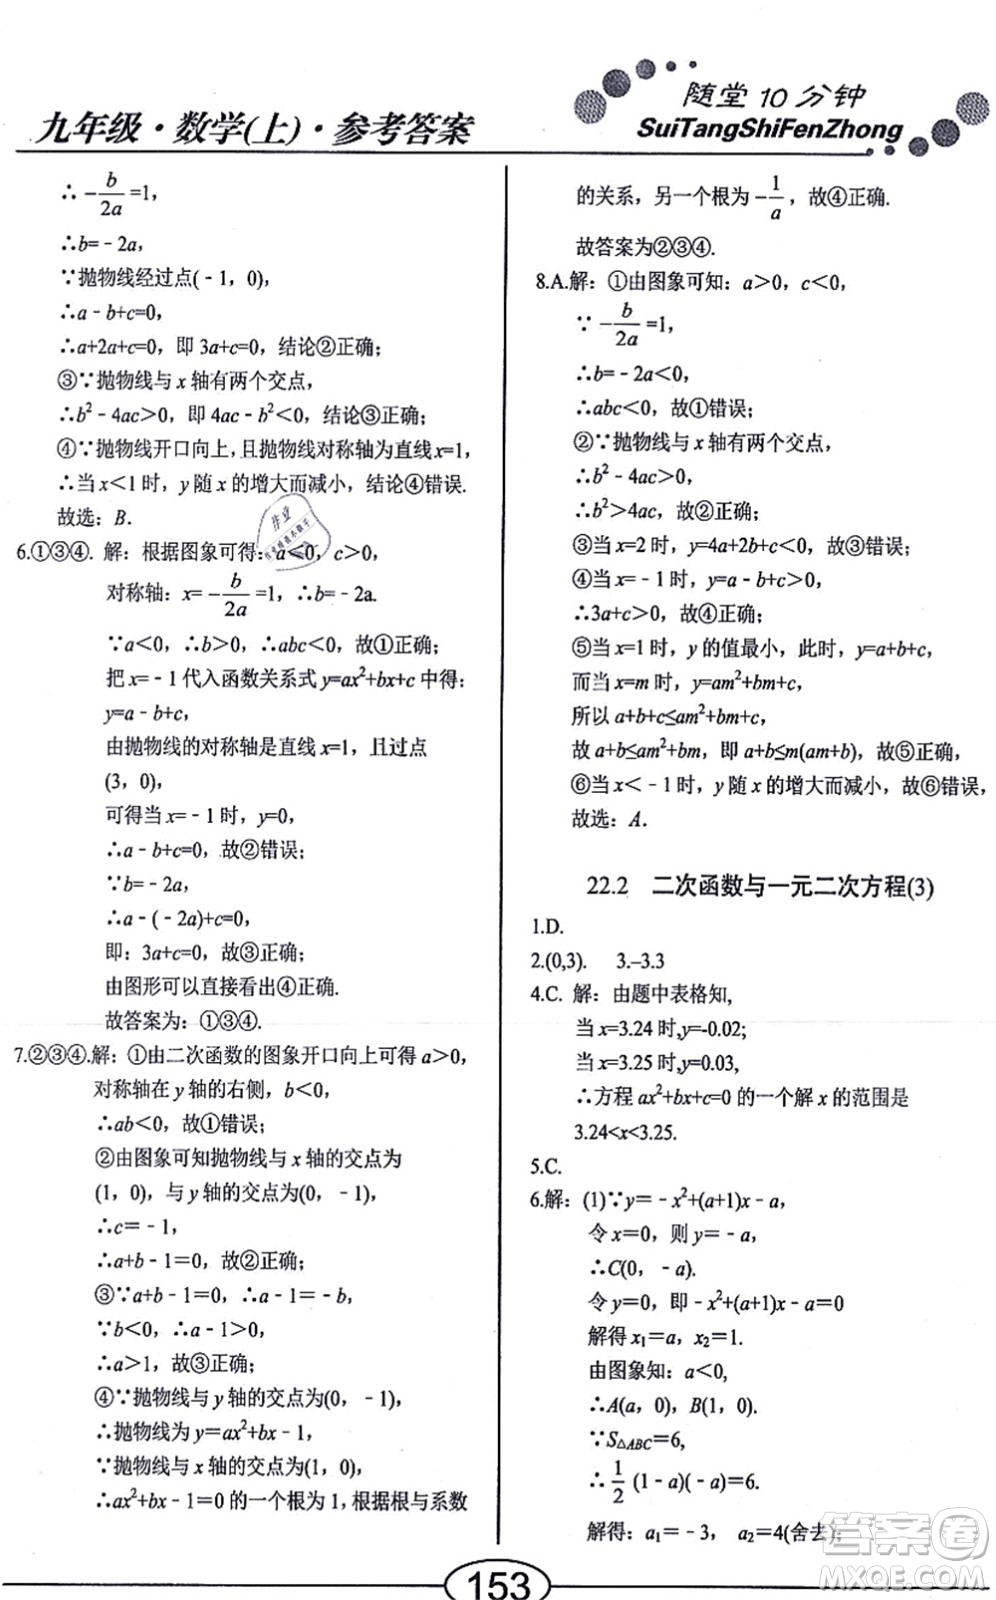 九年级·数学(上)·参考答案
随堂 10 分钟
SuiTangShiFenZhong
∴ -b/2a =1,
∴b=﹣2a,
∵抛物线经过点(﹣1，0),
∴a﹣b+c=0,
∴a+2a+c=0，即 3a+c=0，结论②正确；
③∵抛物线与 x 轴有两个交点，
∴b²﹣4ac＞0，即 4ac﹣b²＜0，结论③正确；
④∵抛物线开口向上，且抛物线对称轴为直线x=1，
∴当 x＜1 时，y 随 x 的增大而减小，结论④错误.
故选：B.
6.①③④. 解：根据图象可得：a＜0，c＞0，
对称轴：x= -b/2a =1，∴b=﹣2a.
∵a＜0，∴b＞0，∴abc＜0，故①正确；
把 x=﹣1 代入函数关系式y=ax²+bx+c 中得：
y=a﹣b+c,
由抛物线的对称轴是直线 x=1，且过点
(3，0)，
可得当 x=﹣1 时，y=0,
∴a﹣b+c=0，故②错误；
∵b=﹣2a,
∴a﹣(﹣2a)+c=0,
即：3a+c=0，故③正确；
由图形可以直接看出④正确.
故答案为：①③④.
7.②③④.解：①由二次函数的图象开口向上可得 a＞0，
对称轴在 y 轴的右侧，b＜0，
∴ab＜0，故①错误；
②由图象可知抛物线与 x 轴的交点为
(1，0)，与 y 轴的交点为(0，﹣1)，
∴c=﹣1,
∴a+b﹣1=0，故②正确；
③∵a+b﹣1=0，∴a﹣1=﹣b,
∵b＜0，∴a﹣1＞0,
∴a＞1，故③正确；
④∵抛物线与 y 轴的交点为(0，﹣1)，
∴抛物线为 y=ax²+bx﹣1,
∵抛物线与 x 轴的交点为(1，0)，
∴ax²+bx﹣1=0 的一个根为 1，根据根与系数
的关系，另一个根为 -1/a，故④正确.
故答案为②③④.
8.A.解：①由图象可知：a＞0，c＜0，
∵ -b/2a =1,
∴b=﹣2a＜0,
∴abc＜0，故①错误；
②∵抛物线与 x 轴有两个交点，
∴b²﹣4ac＞0,
∴b²＞4ac，故②正确；
③当 x=2 时，y=4a+2b+c＜0，故③错误；
④当 x=﹣1 时，y=a﹣b+c＞0,
∴3a+c＞0，故④正确；
⑤当 x=1 时，y 的值最小，此时，y=a+b+c,
而当 x=m 时，y=am²+bm+c,
所以 a+b+c≤am²+bm+c,
故 a+b≤am²+bm，即 a+b≤m(am+b)，故⑤正确，
⑥当 x＜﹣1 时，y 随 x 的增大而减小，故⑥错误，
故选：A.
22.2 二次函数与一元二次方程(3)
1.D.
2.(0,3). 3.–3.3
4.C. 解：由题中表格知，
当 x=3.24 时,y=-0.02;
当 x=3.25 时,y=0.03,
∴方程 ax²+bx+c=0 的一个解 x 的范围是
3.24<x<3.25.
5.C.
6.解：(1)∵y=﹣x²+(a+1)x﹣a,
令 x=0，则 y=﹣a,
∴C(0，﹣a).
令 y=0，即﹣x²+(a+1)x﹣a=0
解得 x₁=a，x₂=1.
由图象知：a＜0，
∴A(a，0)，B(1，0).
∵S△ABC=6,
∴ 1/2 (1﹣a)(﹣a)=6.
解得：a₁=﹣3，a₂=4(舍去)；
153
答案卷
MXQE.COM